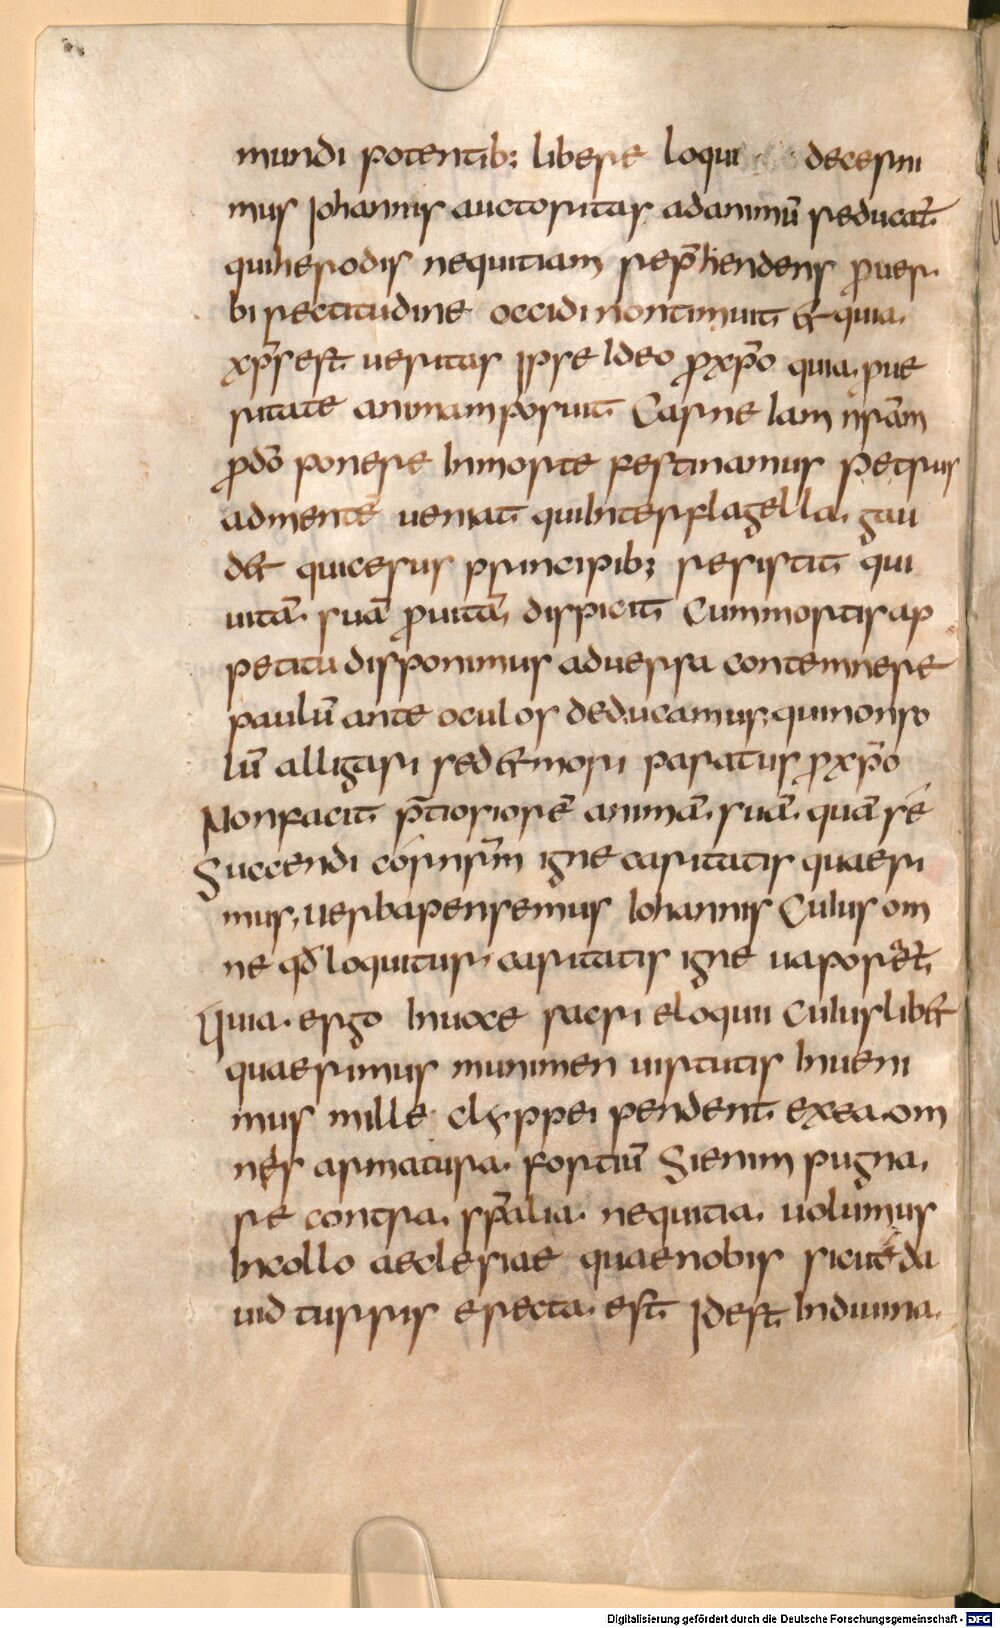 mundi potentib; libere loqui decerni
mus Johannis auctoritas adanimū reducat̄.
quiherodis nequitiam rep̄hendens ꝓuer
bi rectitudine occidi nontimuit & quia.
xp̄s est ueritas ipse Ideo ꝓ xp̄o quia. pue
ritate animam posuit Carne Iam nr̄am
ꝓdō ponere In morte festinamus Petrus
admentē ueniat quiInterflagella. gau
det quicesus principib; resistit qui
uitā. suā ꝓuitā dispicit Cum mortis ap
petitu disponimus aduersa contemnere
paulū ante oculos deducamus, quinonso
lū alligari sed & mori paratus ꝓ xp̄o
Non facit p̄tiosiorē animā. suā. quā sē
Succendi cór nr̄m igne caritatis quaeri
mus, uerba pensemus Iohannis Cuius om
ne qd̄ loquitur. caritatis igne uaporat̄
Quia. ergo In uoce sacri eloquii Cuius lib&
quaerimus munimen uirtutis Inueni
mus mille Clyppei pendent exea. om
nes armatura. fortiū Sienim pugna.
re contra. sp̄alia. nequitia. uolumus
In collo aeclesiae quae nobis sicut da
uid turris erecta. est Idest Indiuina.
Digitalisierung gefördert durch die Deutsche Forschungsgemeinschaft - DFG